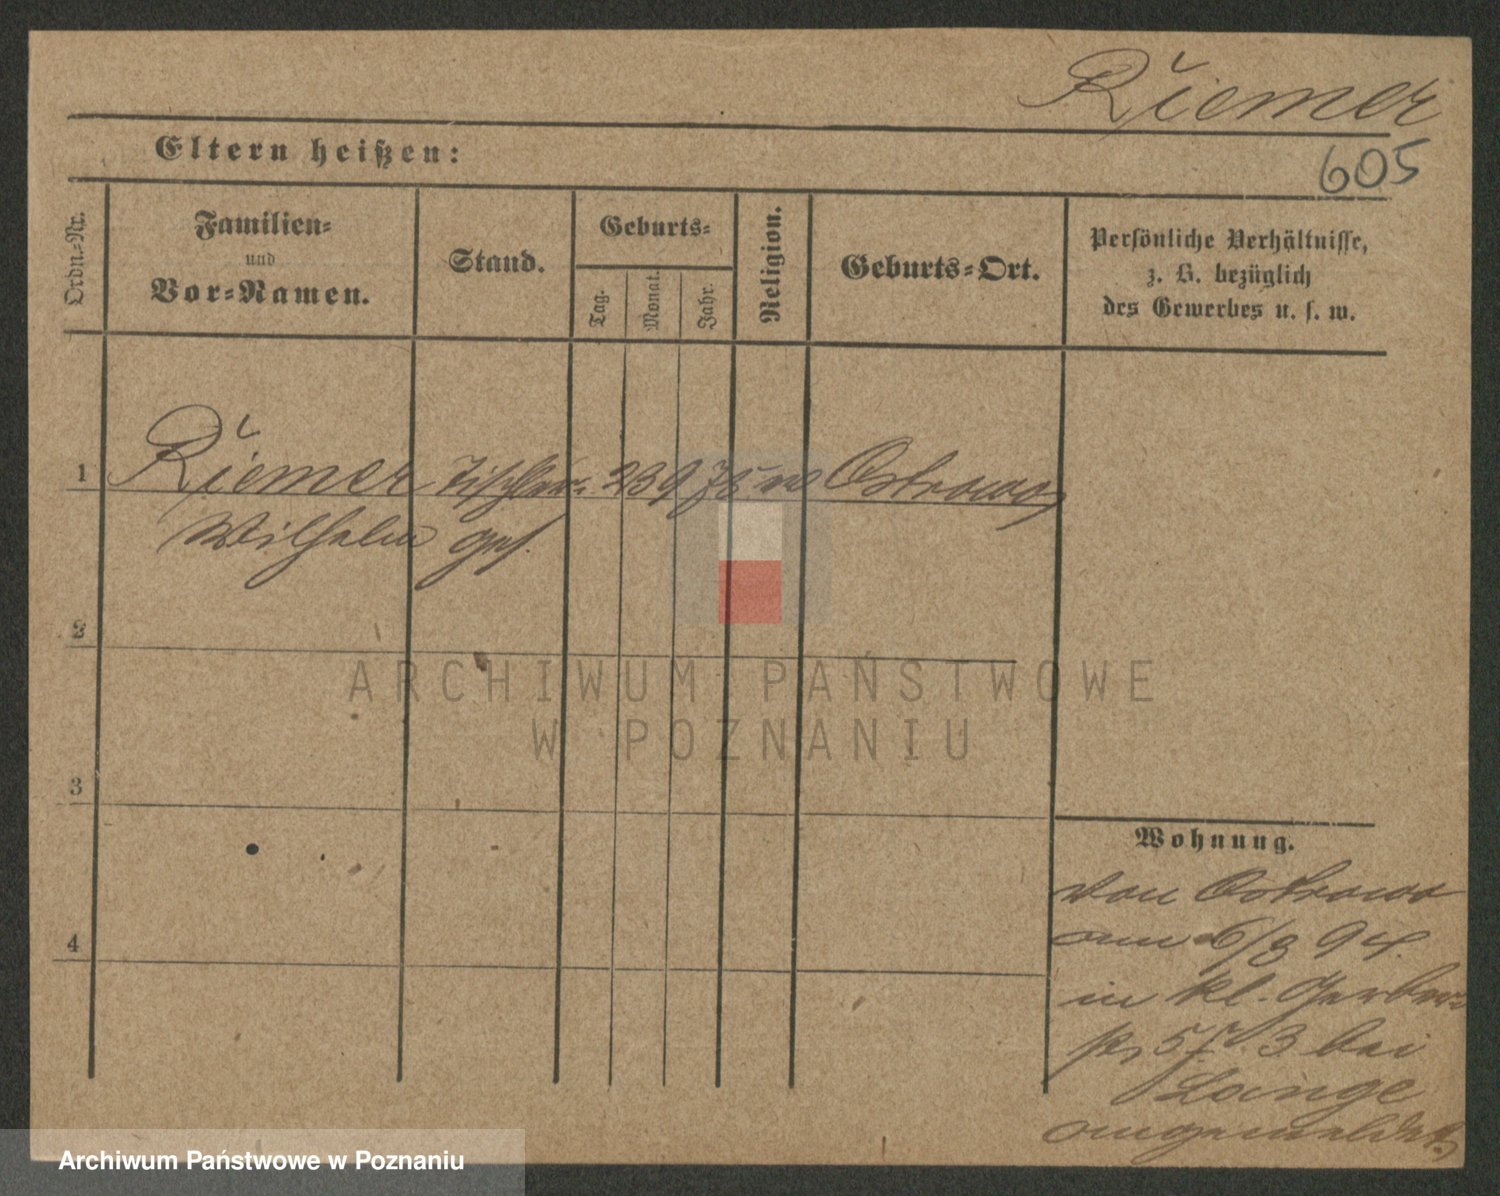 Riemer
605
Eltern heißen:
Ordn.-Nr.
Familien-
und
Vor-Namen.
Stand.
Geburts-
Tag.
Monat.
Jahr.
Religion.
Geburts-Ort.
Persönliche Verhältnisse,
z. B. bezüglich
des Gewerbes u. s. w.
1
Riemer Tischler- 23 9 75 Ostrowo
Wilhelm ges.
2
ARCHIWUM PAŃSTWOWE
W POZNANIU
3
Wohnung.
von Ostrowo
4
am 6/8 94.
in kl. Gerber-
3 bei
Lange
angemeldet
Archiwum Państwowe w Poznaniu